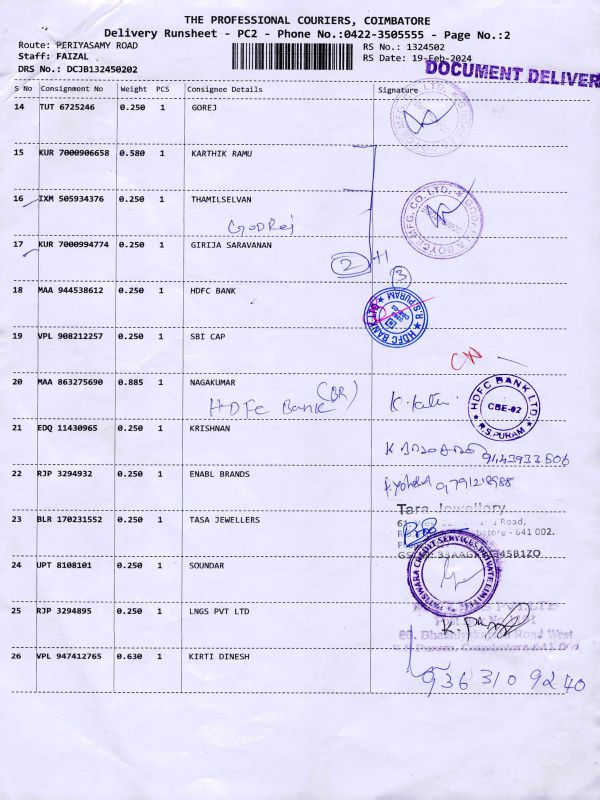 THE PROFESSIONAL COURIERS, COIMBATORE
Delivery Runsheet - PC2 - Phone No.:0422-3505555 - Page No.:2
Route: PERIYASAMY ROAD
RS No.: 1324502
Staff: FAIZAL
RS Date: 19-Feb-2024
DRS No.: DCJB132450202
DOCUMENT DELIVER
S No Consignment No Weight PCS Consignee Details Signature
14 TUT 6725246 0.250 1 GOREJ
15 KUR 7000906658 0.580 1 KARTHIK RAMU
16 IXM 505934376 0.250 1 THAMILSELVAN
GODREJ
17 KUR 7000994774 0.250 1 GIRIJA SARAVANAN
2
3
18 MAA 944538612 0.250 1 HDFC BANK
HDFC BANK
R.S.PURAM
19 VPL 908212257 0.250 1 SBI CAP
20 MAA 863275690 0.885 1 NAGAKUMAR
HDFC Bank (BR)
HDFC BANK LTD.
CBE-02
R.S.PURAM
21 EDQ 11430965 0.250 1 KRISHNAN
9443933506
22 RJP 3294932 0.250 1 ENABL BRANDS
9791218988
Tara Jewellery
Road,
641 002.
23 BLR 170231552 0.250 1 TASA JEWELLERS
24 UPT 8108101 0.250 1 SOUNDAR
CREDIT SERVICES PRIVATE LIMITED
25 RJP 3294895 0.250 1 LNGS PVT LTD
PVT LTD
Road West
26 VPL 947412765 0.630 1 KIRTI DINESH
936 310 9240